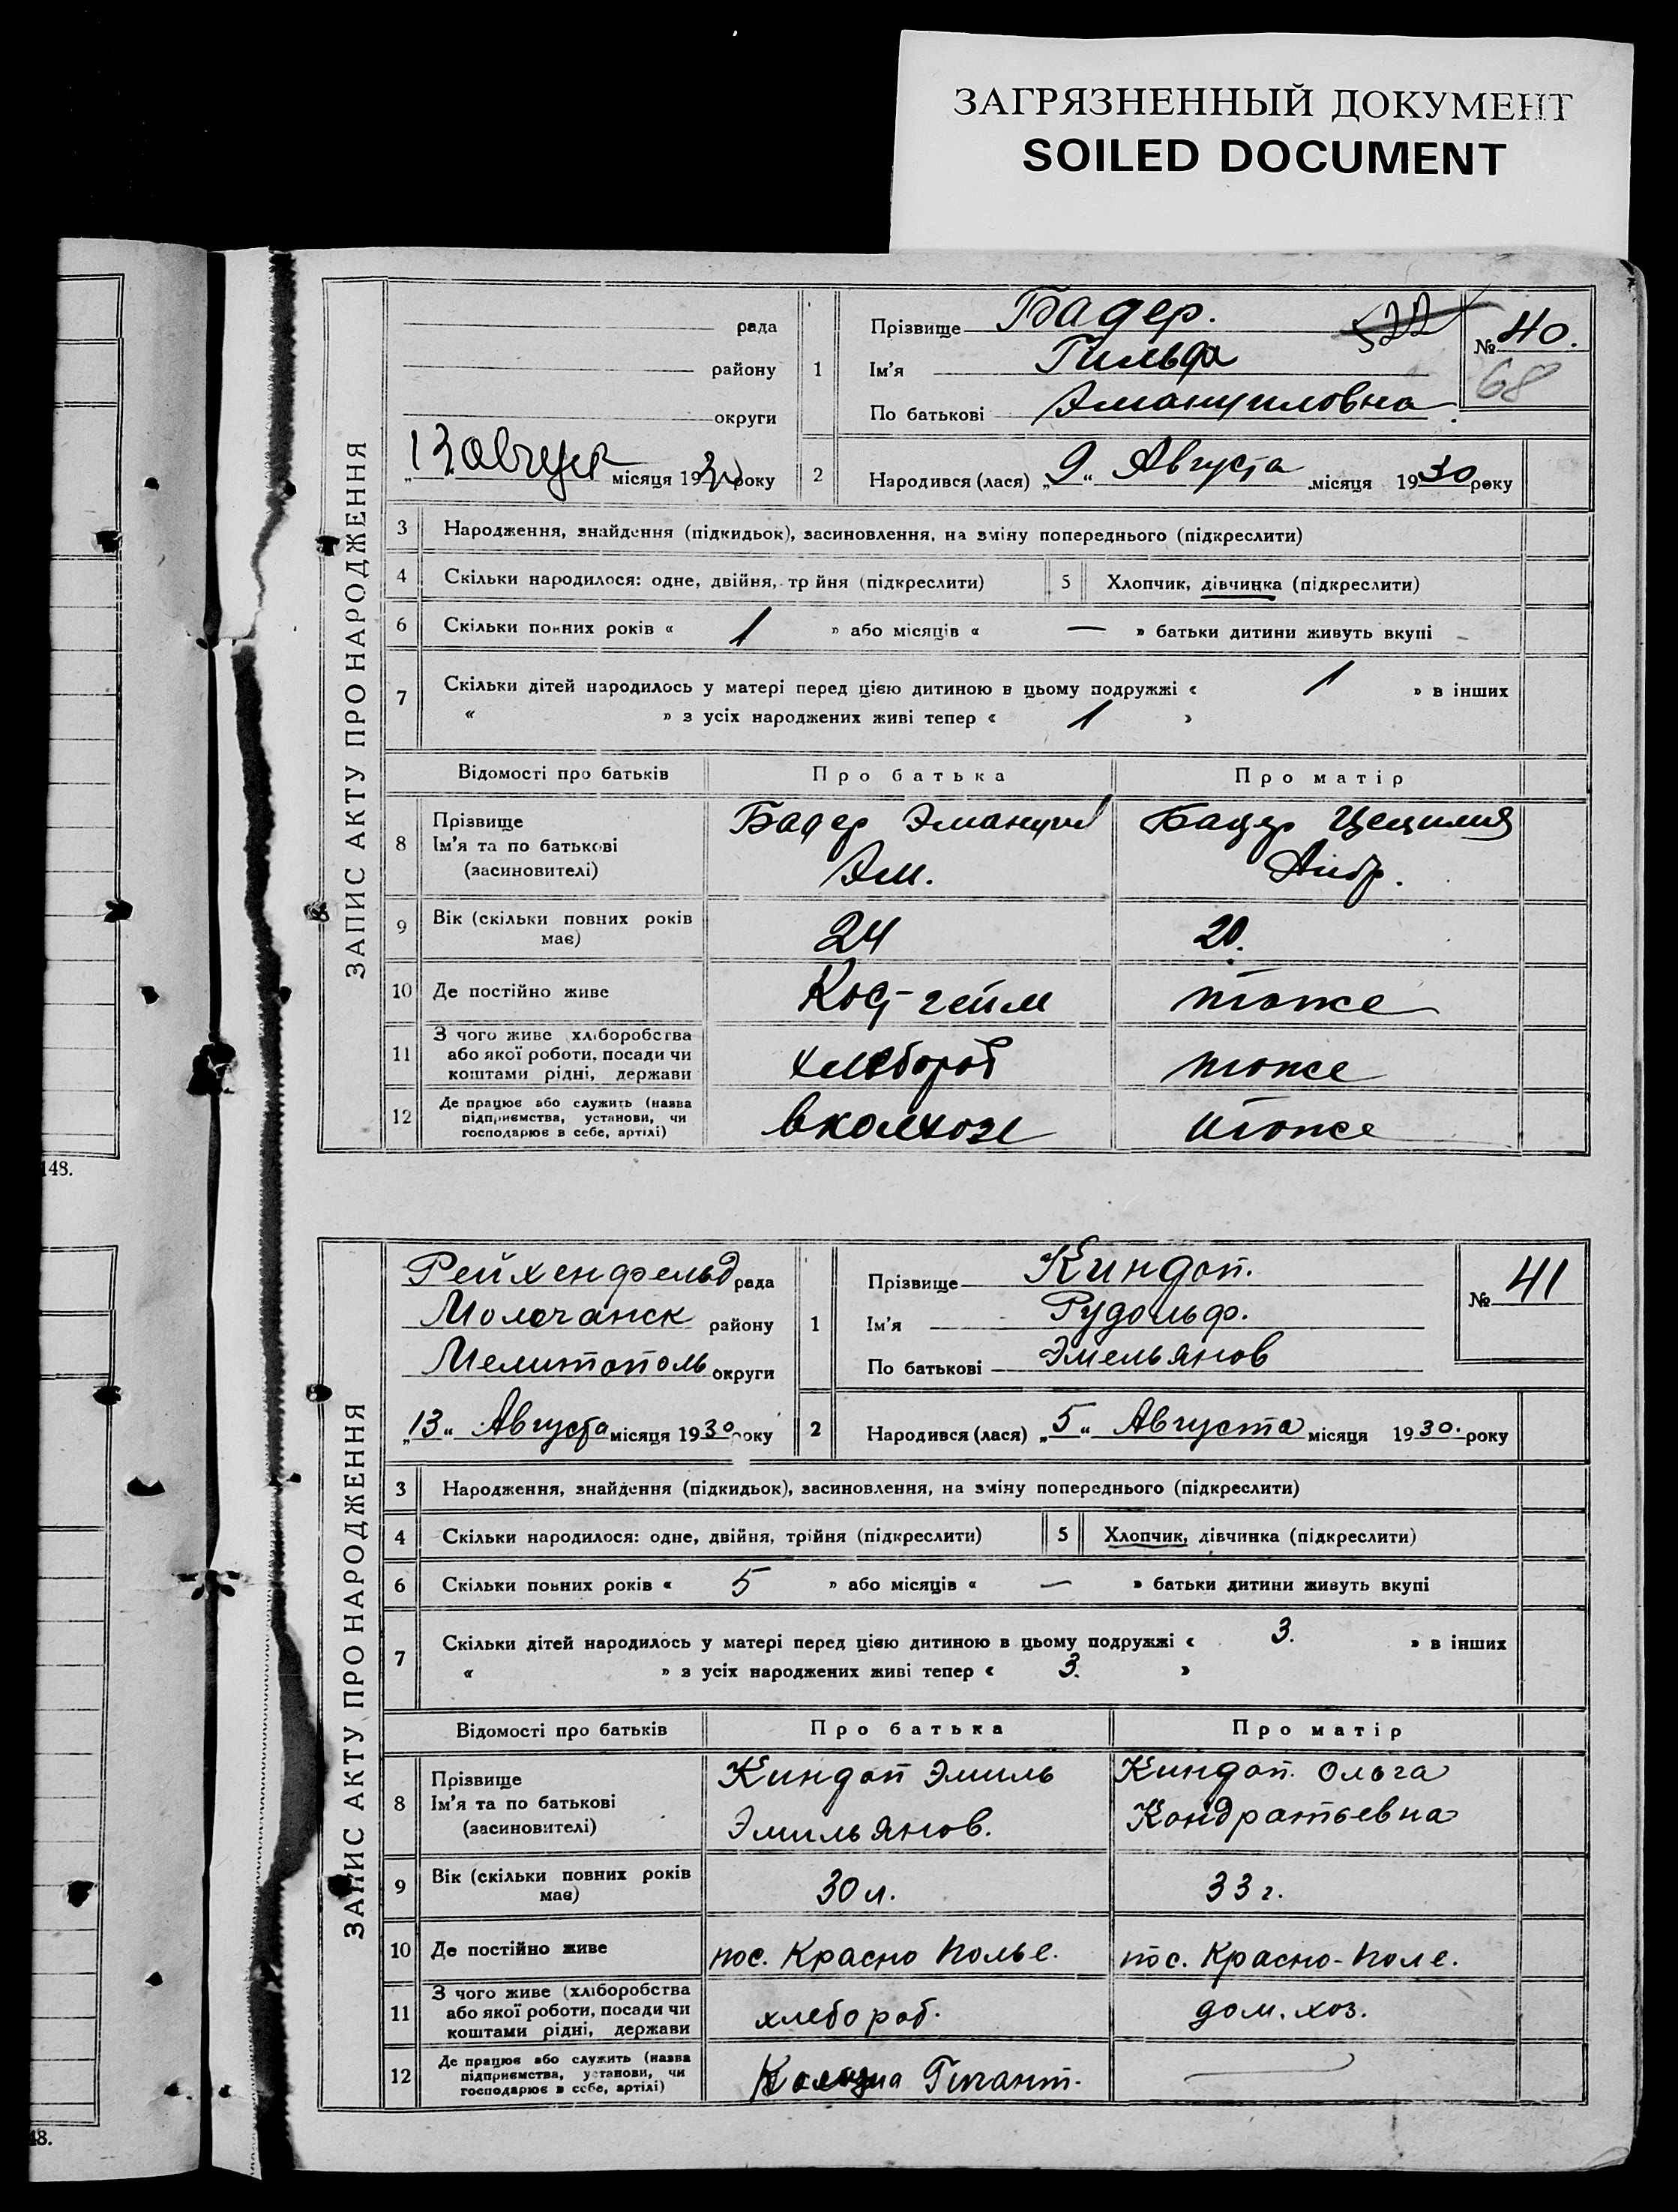 ЗАГРЯЗНЕННЫЙ ДОКУМЕНТ
SOILED DOCUMENT
ЗАПИС АКТУ ПРО НАРОДЖЕННЯ
рада
району
округи
„13 август місяця 1930 року
1
Прізвище Бадер.
522
Ім'я Гильда
По батькові Эмануиловна
№ 40.
68
2
Народився (лася) „9“ Августа місяця 1930 року
3 Народження, знайдення (підкидьок), засиновлення, на зміну попереднього (підкреслити)
4 Скільки народилося: одне, двійня, трійня (підкреслити) 5 Хлопчик, дівчинка (підкреслити)
6 Скільки повних років « 1 » або місяців « — » батьки дитини живуть вкупі
7 Скільки дітей народилось у матері перед цією дитиною в цьому подружжі « 1 » в інших
« » з усіх народжених живі тепер « 1 »
Відомості про батьків Про батька Про матір
8 Прізвище Ім'я та по батькові (засиновителі)
Бадер Эмануил
Эм.
Бадер Цецилия
Андр.
9 Вік (скільки повних років має) 24 20.
10 Де постійно живе Кост-гейм тоже
11 З чого живе хліборобства або якої роботи, посади чи коштами рідні, держави хлебороб тоже
12 Де працює або служить (назва підприємства, установи, чи господарює в себе, артілі) в колхозе тоже
148.
ЗАПИС АКТУ ПРО НАРОДЖЕННЯ
Рейхенфельд рада
Молочанск району
Мелитополь округи
„13“ Августа місяця 1930 року
1
Прізвище Киндоп.
Ім'я Рудольф.
По батькові Эмельянов
№ 41
2
Народився (лася) „5“ Августа місяця 1930. року
3 Народження, знайдення (підкидьок), засиновлення, на зміну попереднього (підкреслити)
4 Скільки народилося: одне, двійня, трійня (підкреслити) 5 Хлопчик, дівчинка (підкреслити)
6 Скільки повних років « 5 » або місяців « — » батьки дитини живуть вкупі
7 Скільки дітей народилось у матері перед цією дитиною в цьому подружжі « 3. » в інших
« » з усіх народжених живі тепер « 3. »
Відомості про батьків Про батька Про матір
8 Прізвище Ім'я та по батькові (засиновителі)
Киндоп Эмиль
Эмильянов.
Киндоп. Ольга
Кондратьевна
9 Вік (скільки повних років має) 30 л. 33 г.
10 Де постійно живе пос. Красно Полье. пос. Красно-Поле.
11 З чого живе (хліборобства або якої роботи, посади чи коштами рідні, держави хлебороб. дом. хоз.
12 Де працює або служить (назва підприємства, установи, чи господарює в себе, артілі) Гигант.
48.